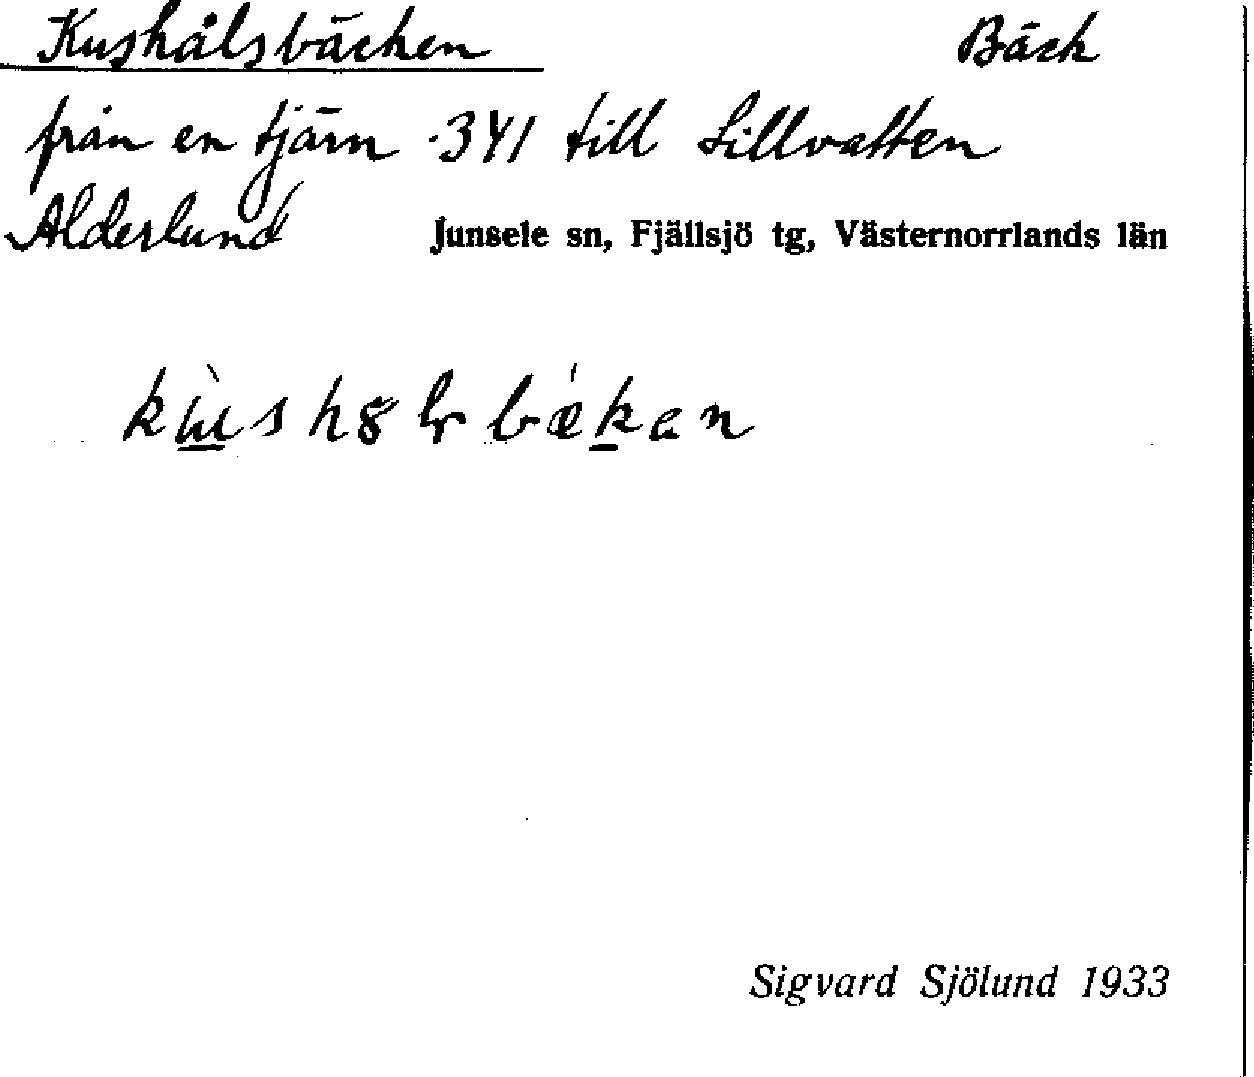 Kushålsbäcken Bäck
från en tjärn .341 till Lillvatten
Alderlund Junsele sn, Fjällsjö tg, Västernorrlands län
Sigvard Sjölund 1933